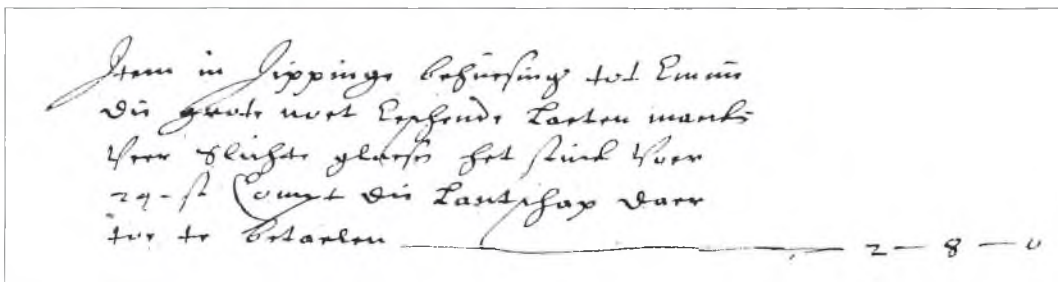 Item in Jippinge behuesing tot Emmen
die grote noet Eeschende Laeten maeken
Veer Slichte glaesen het stuck Voer
24-st Compt die Lantschap daer
toe te betaelen — 2 — 8 — 0